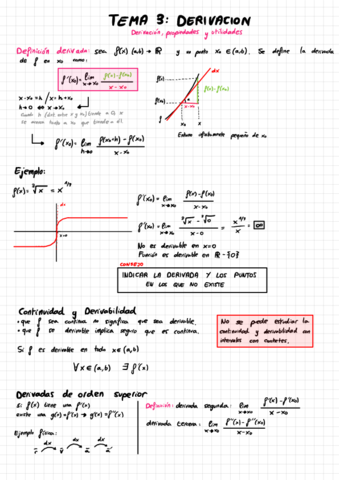 TEMA 3: DERIVACION
Derivación, propiedades y utilidades
Definición derivada: sea f(x) (a,b) → ℝ y un punto x₀ ∈ (a,b). Se define la derivada
de f en x₀ como:
f'(x₀) = lim x→x₀ f(x)-f(x₀) / x-x₀
x-x₀=h / x=h+x₀
h→0 ⇔ x→x₀
f'(x₀) = lim h→0 f(x₀+h) - f(x₀) / x-x₀
dx
f(x)
f(x₀)
f(x)-f(x₀)
x-x₀
x₀
x
Ejemplo:
f(x) = ∛x = x^1/3
dx
x=0
f'(x₀) = lim x→x₀ f(x)-f(x₀) / x-x₀
f'(x₀) = lim x→x₀ ∛x - ∛0 / x-0 = x^1/3 / x = ∞
No es derivable en x=0
es derivable en ℝ-{0}
CONSEJO
INDICAR LA DERIVADA Y LOS PUNTOS
EN LOS QUE NO EXISTE
Continuidad y Derivabilidad
· que f sea continua no significa que sea derivable.
· que f se derivable implica seguro que es continua.
No se puede estudiar la
continuidad y derivabilidad en
Si f es derivable en todo x∈(a,b)
∀x∈(a,b) ∃ f'(x)
Derivadas de orden superior
si f(x) tiene una f'(x)
existe una g(x)=f'(x) → g'(x)=f''(x)
Definición: derivada segunda: lim x→x₀ f'(x)-f'(x₀) / x-x₀
derivada tercera: lim x→x₀ f''(x)-f''(x₀) / x-x₀
Ejemplo físico:
dx dx dx